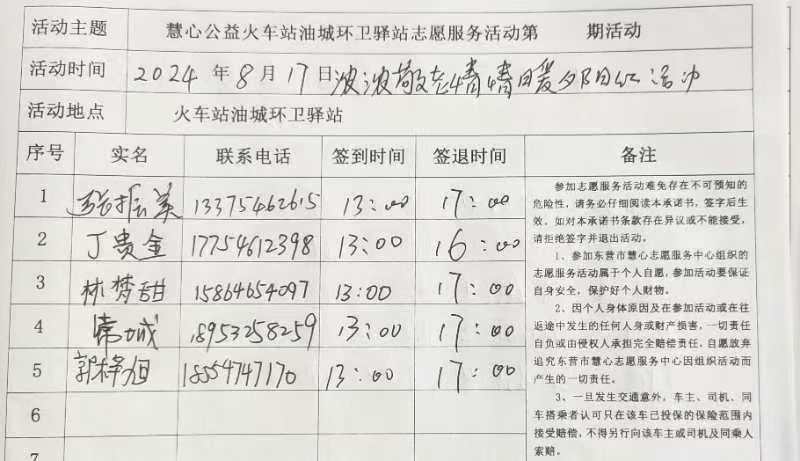 活动主题 慧心公益火车站油城环卫驿站志愿服务活动第 期活动
活动时间 2024年8月17日浓浓敬老情情暖夕阳红活动
活动地点 火车站油城环卫驿站
序号 实名 联系电话 签到时间 签退时间 备注
1 张振美 13375462615 13:00 17:00
2 丁贵金 17754612398 13:00 16:00
3 林梦甜 15864654097 13:00 17:00
4 常城 18953258259 13:00 17:00
5 郭梓旭 18554747170 13:00 17:00
6
7
参加志愿服务活动难免存在不可预知的
危险性，请务必仔细阅读本承诺书，签字后生
效。如对本承诺书条款存在异议或不能接受，
请拒绝签字并退出活动。
1、参加东营市慧心志愿服务中心组织的
志愿服务活动属于个人自愿，参加活动要保证
自身安全，保护好个人财物。
2、因个人身体原因及在参加活动或在往
返途中发生的任何人身或财产损害，一切责任
自负或由侵权人承担完全赔偿责任，自愿放弃
追究东营市慧心志愿服务中心因组织活动而
产生的一切责任。
3、一旦发生交通意外，车主、司机、同
车搭乘者认可只在该车已投保的保险范围内
接受赔偿，不得另行向该车主或司机及同乘人
索赔。